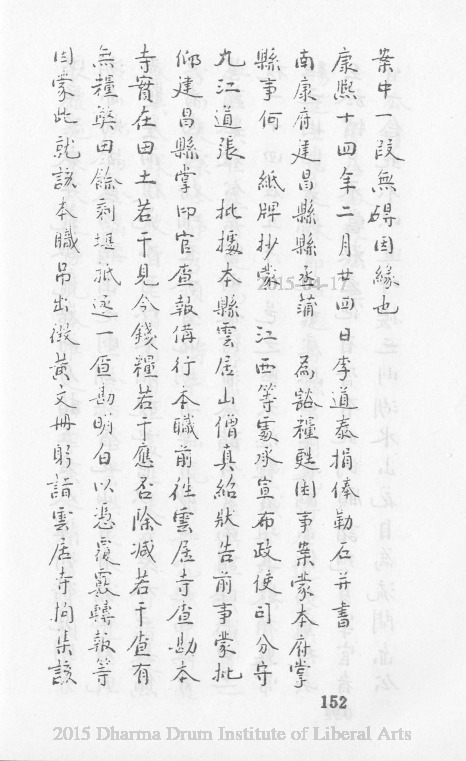 案中一段無碍因緣也
康熈十四年二月廿四日李道泰捐俸勒石并書
南康府建昌縣縣丞蒲 為豁糧甦困事案蒙本府掌
縣事何 紙牌抄蒙 江西等處承宣布政使司分守
九江道張 批據本縣雲居山僧真給狀告前事蒙批
仰建昌縣掌印官查報俻行本職前徃雲居寺查勘本
寺實在田土若干見今錢糧若干應否除减若干查有
無糧獘田餘剩堪抵逐一查勘明白以憑覆覈轉報等
因蒙此就該本職吊出徴黃文冊躬詣雲居寺拘集該
152
2015-04-17
2015 Dharma Drum Institute of Liberal Arts